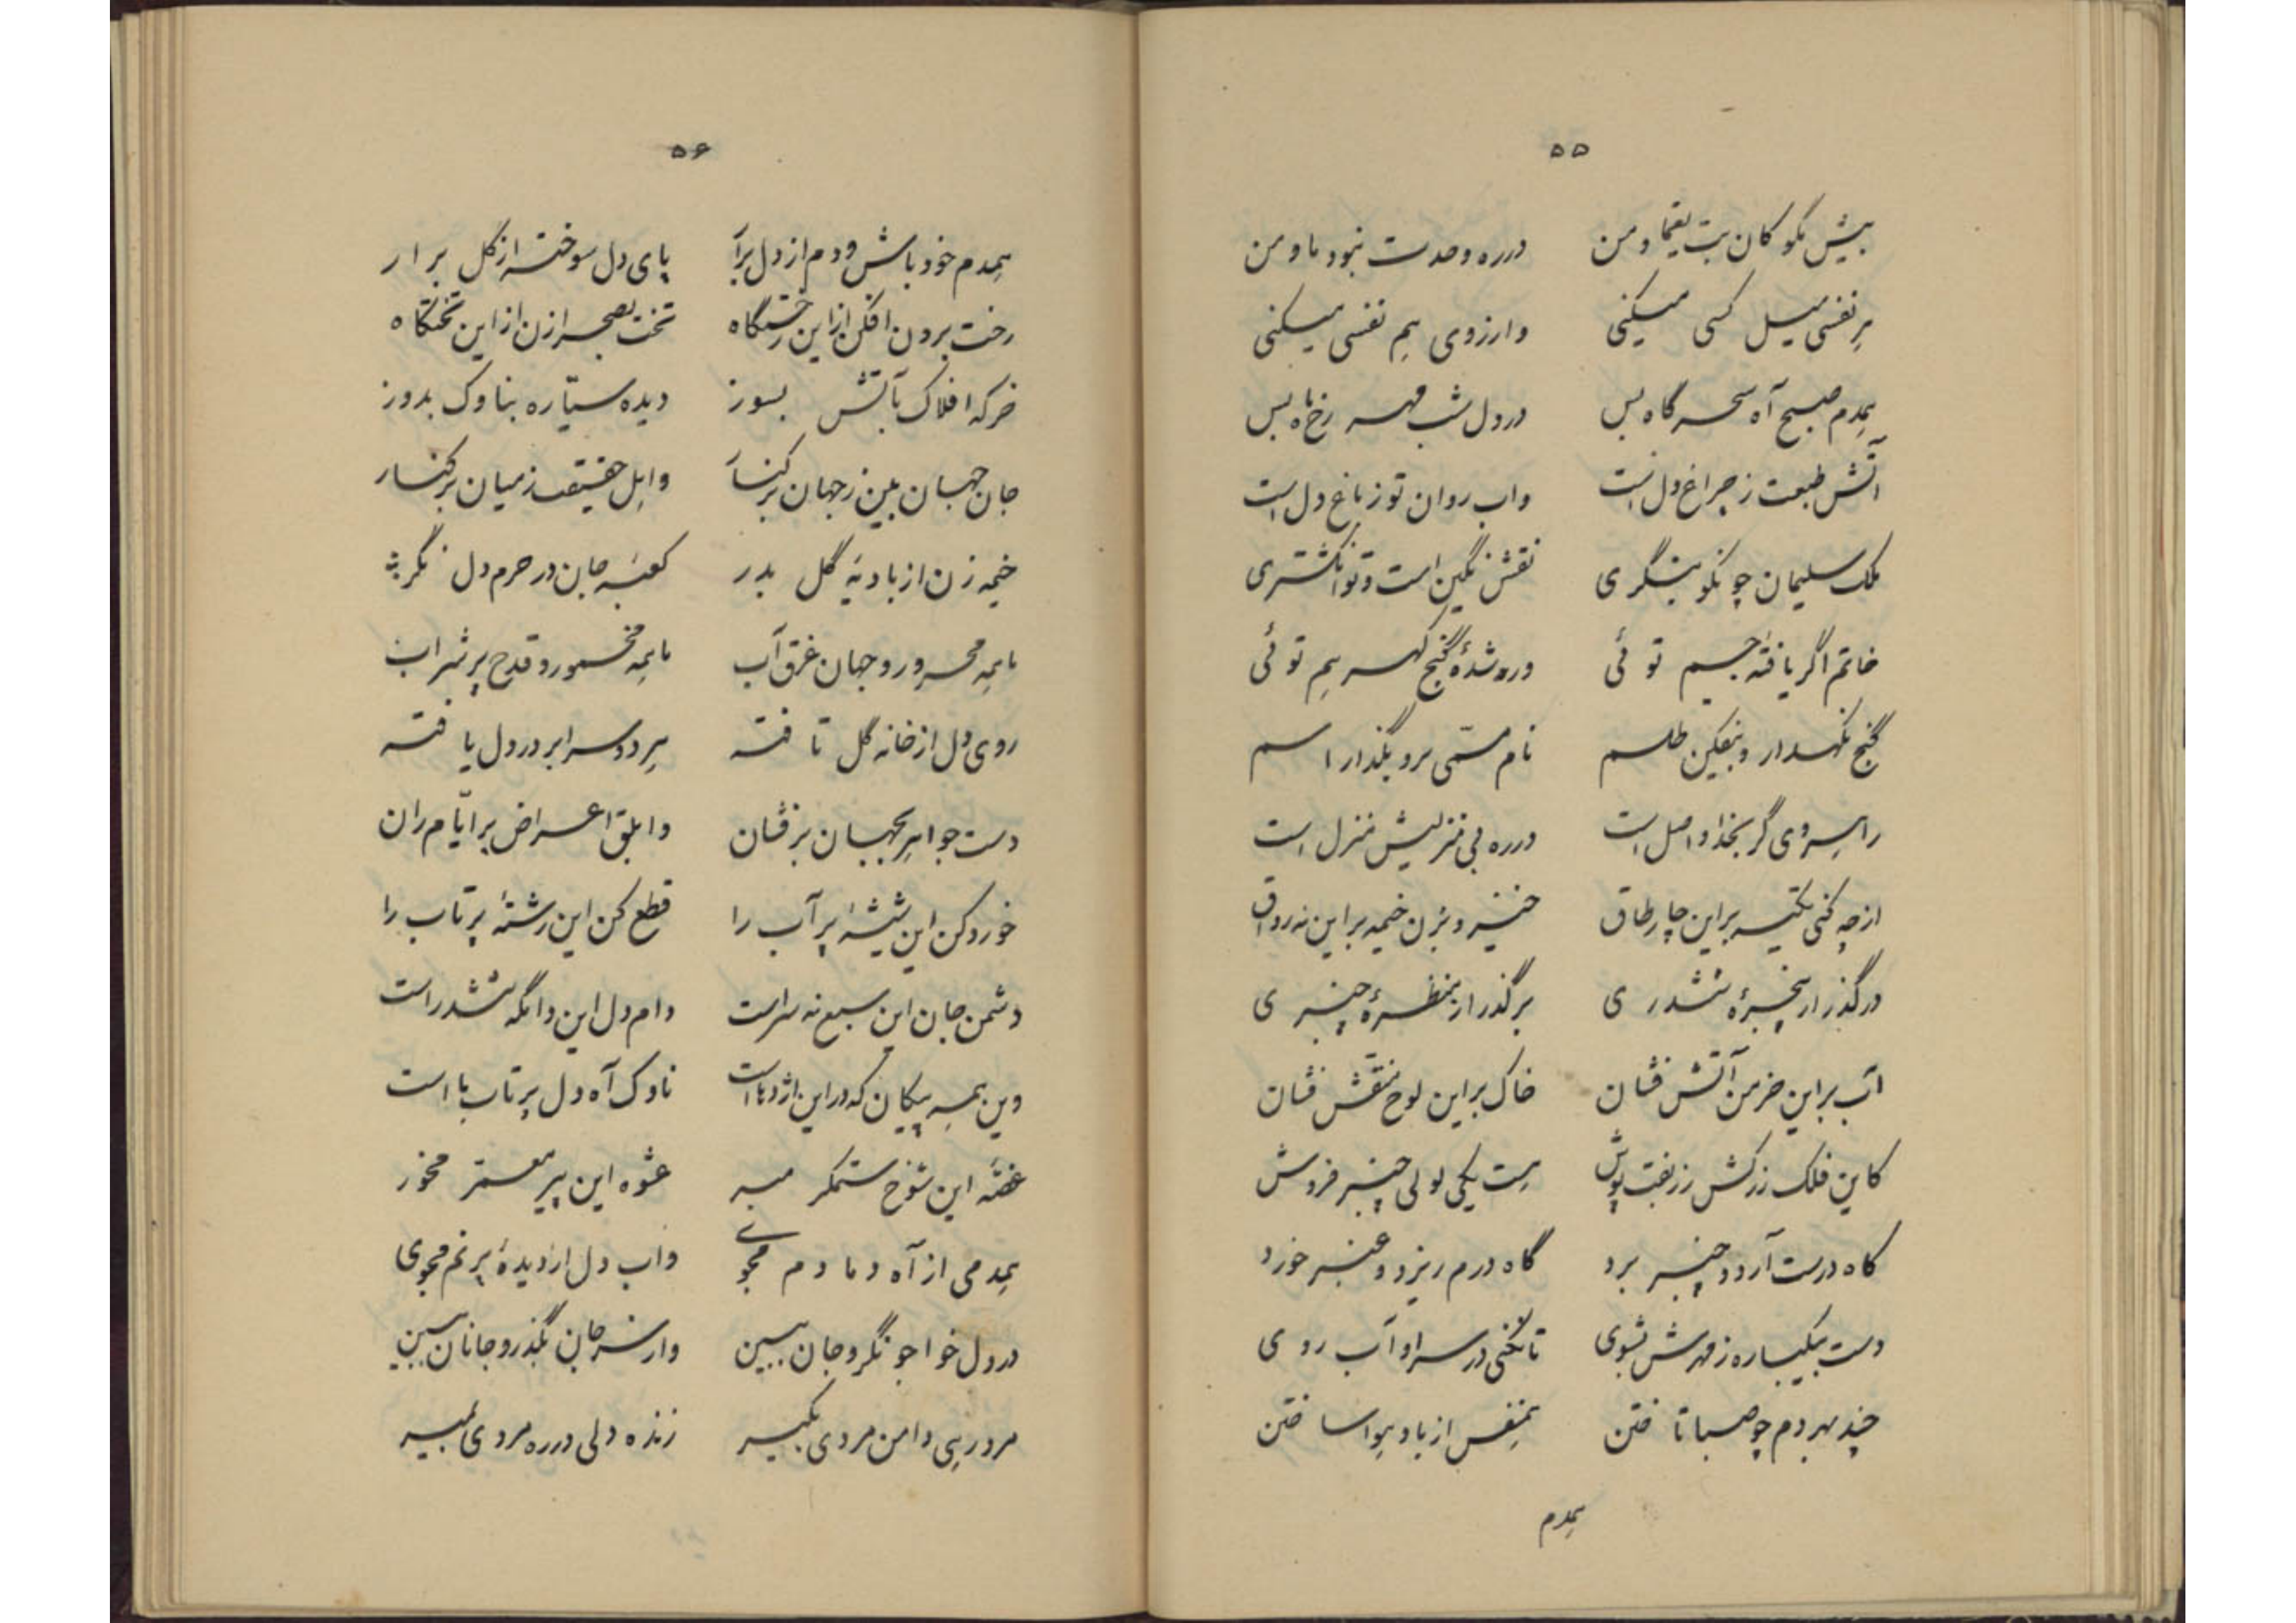 ۵۵
بیش مگو کان بت یغما و من	درره وحدت نبود ما و من
هر نفسی میل کسی میکنی	وارزوی هم نفسی میکنی
همدم صبح آه سحرگاه بس	در دل شب مهر رخ ماه بس
آتش طبعت ز چراغ دل است	واب روان تو ز باغ دل است
ملک سلیمان چو نکو بنگری	نقش نگین است و تو انگشتری
خاتم اگر یافتهٔ جم توئی	ور شدهٔ گنج گهر هم توئی
گنج نگهدار و بیفکن طلسم	نام مسمّی برو بگذار اسم
راهروی گر بخدا واصل است	درره بی منزلیش منزل است
از چه کنی تکیه بر این چار طاق	خیز و بزن خیمه بر این نه رواق
درگذر از پنجرهٔ ششدری	برگذر از منظرهٔ چنبری
آب بر این خرمن آتش فشان	خاک بر این لوح منقش فشان
کاین فلک زرکش زربفت پوش	هست یکی لولی چنبر فروش
گاه درست آرد و چنبر برد	گاه درم ریزد و عنبر خورد
دست بیکباره ز مهرش بشوی	تا نکنی در سر او آب روی
چند بهر دم چو صبا تاختن	همنفس از باد هوا ساختن
همدم
۵۶
همدم خود باش و دم از دل برآر	پای دل سوخته از گل برار
رخت برون افکن از این رختگاه	تخت بصحرا زن از این تختگاه
خرگه افلاک بآتش بسوز	دیده سیّاره بناوک بدوز
جان جهان بین ز جهان بر کنار	واهل حقیقت ز میان بر کنار
خیمه زن از بادیهٔ گل بدر	کعبهٔ جان در حرم دل نگر
ما همه محرور و جهان غرق آب	ما همه مخمور و قدح پر شراب
روی دل از خانه گل تافته	هر دو سرا بر در دل یافته
دست جواهر بجهان بر فشان	وابلق اعراض بر ایّام ران
خورد کن این شیشهٔ پر آب را	قطع کن این رشتهٔ پر تاب را
دشمن جان این سبع نه سراست	دام دل این دامگه ششدر است
وین همه پیکان که در این اژدهااست	ناوک آه دل پر تاب ما است
غصّه این شوخ ستمگر مبر	عشوه این پیر معمر مخور
همدمی از آه دمادم مجوی	واب دل از دیدهٔ پر نم مجوی
در دل خواجو نگر و جان ببین	واز سر جان بگذر و جانان ببین
مرد رهی دامن مردی بگیر	زنده دلی درره مردی بمیر